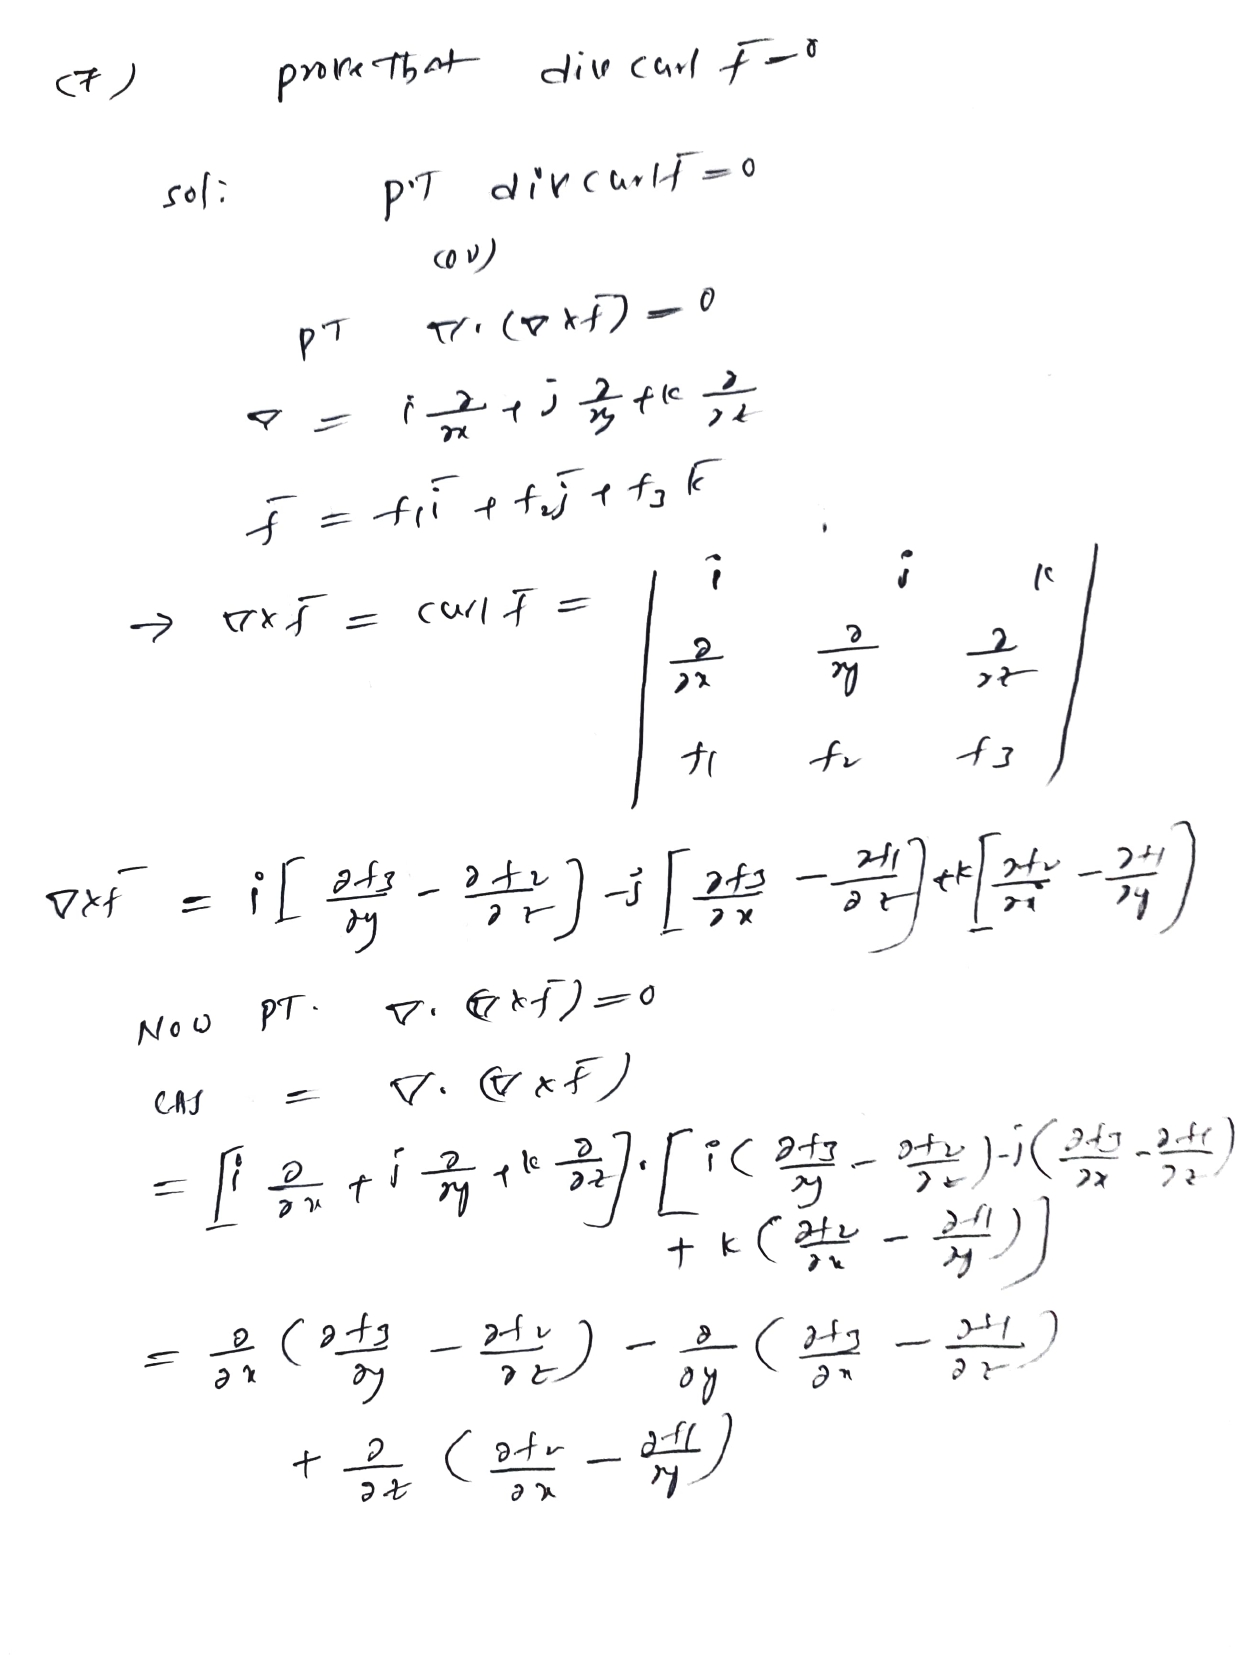 (7) prove that div curl f̄ = 0
sol: p.T div curl f̄ = 0
(or)
PT ∇. (∇ × f̄) = 0
∇ = i ∂/∂x + j ∂/∂y + k ∂/∂z
f̄ = f₁ī + f₂j̄ + f₃k̄
→ ∇×f̄ = curl f̄ = | i j k
∂/∂x ∂/∂y ∂/∂z
f1 f2 f3 |
∇×f̄ = i[∂f3/∂y - ∂f2/∂z] - j[∂f3/∂x - ∂f1/∂z] + k[∂f2/∂x - ∂f1/∂y]
Now PT. ∇. (∇×f̄) = 0
= ∇. (∇×f̄)
= [i ∂/∂x + j ∂/∂y + k ∂/∂z].[i(∂f3/∂y - ∂f2/∂z) - j(∂f3/∂x - ∂f1/∂z)
+ k(∂f2/∂x - ∂f1/∂y)]
= ∂/∂x (∂f3/∂y - ∂f2/∂z) - ∂/∂y (∂f3/∂x - ∂f1/∂z)
+ ∂/∂z (∂f2/∂x - ∂f1/∂y)